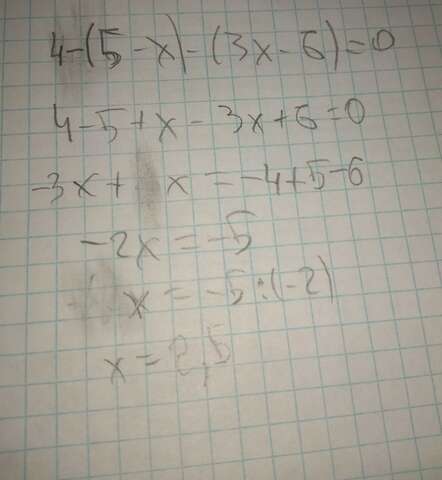 4-(5-x)-(3x-6)=0
4-5+x-3x+6=0
-3x+ x=-4+5-6
-2x=-5
x=-5:(-2)
x=2,5